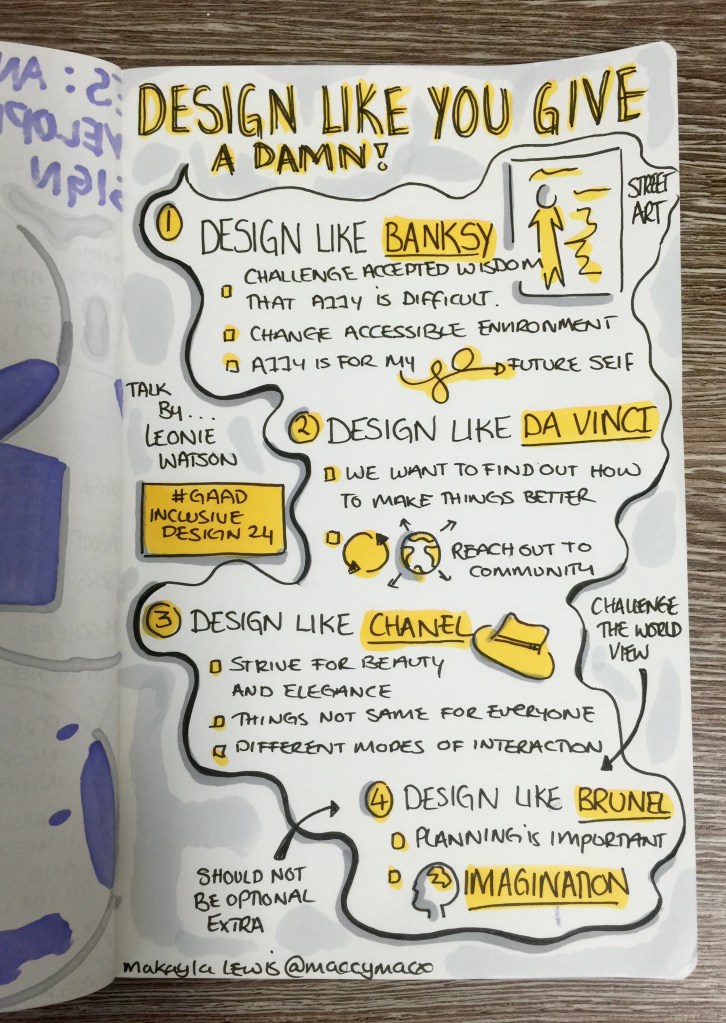 DESIGN LIKE YOU GIVE
A DAMN!
STREET
ART
1 DESIGN LIKE BANKSY
CHALLENGE ACCEPTED WISDOM
THAT A11Y IS DIFFICULT.
CHANGE ACCESSIBLE ENVIRONMENT
A11Y IS FOR MY FUTURE SELF
TALK
BY...
LEONIE
WATSON
#GAAD
INCLUSIVE
DESIGN 24
2 DESIGN LIKE DA VINCI
WE WANT TO FIND OUT HOW
TO MAKE THINGS BETTER
REACH OUT TO
COMMUNITY
3 DESIGN LIKE CHANEL
STRIVE FOR BEAUTY
AND ELEGANCE
THINGS NOT SAME FOR EVERYONE
DIFFERENT MODES OF INTERACTION
CHALLENGE
THE WORLD
VIEW
4 DESIGN LIKE BRUNEL
PLANNING IS IMPORTANT
IMAGINATION
SHOULD NOT
BE OPTIONAL
EXTRA
makayla Lewis @maccymacx